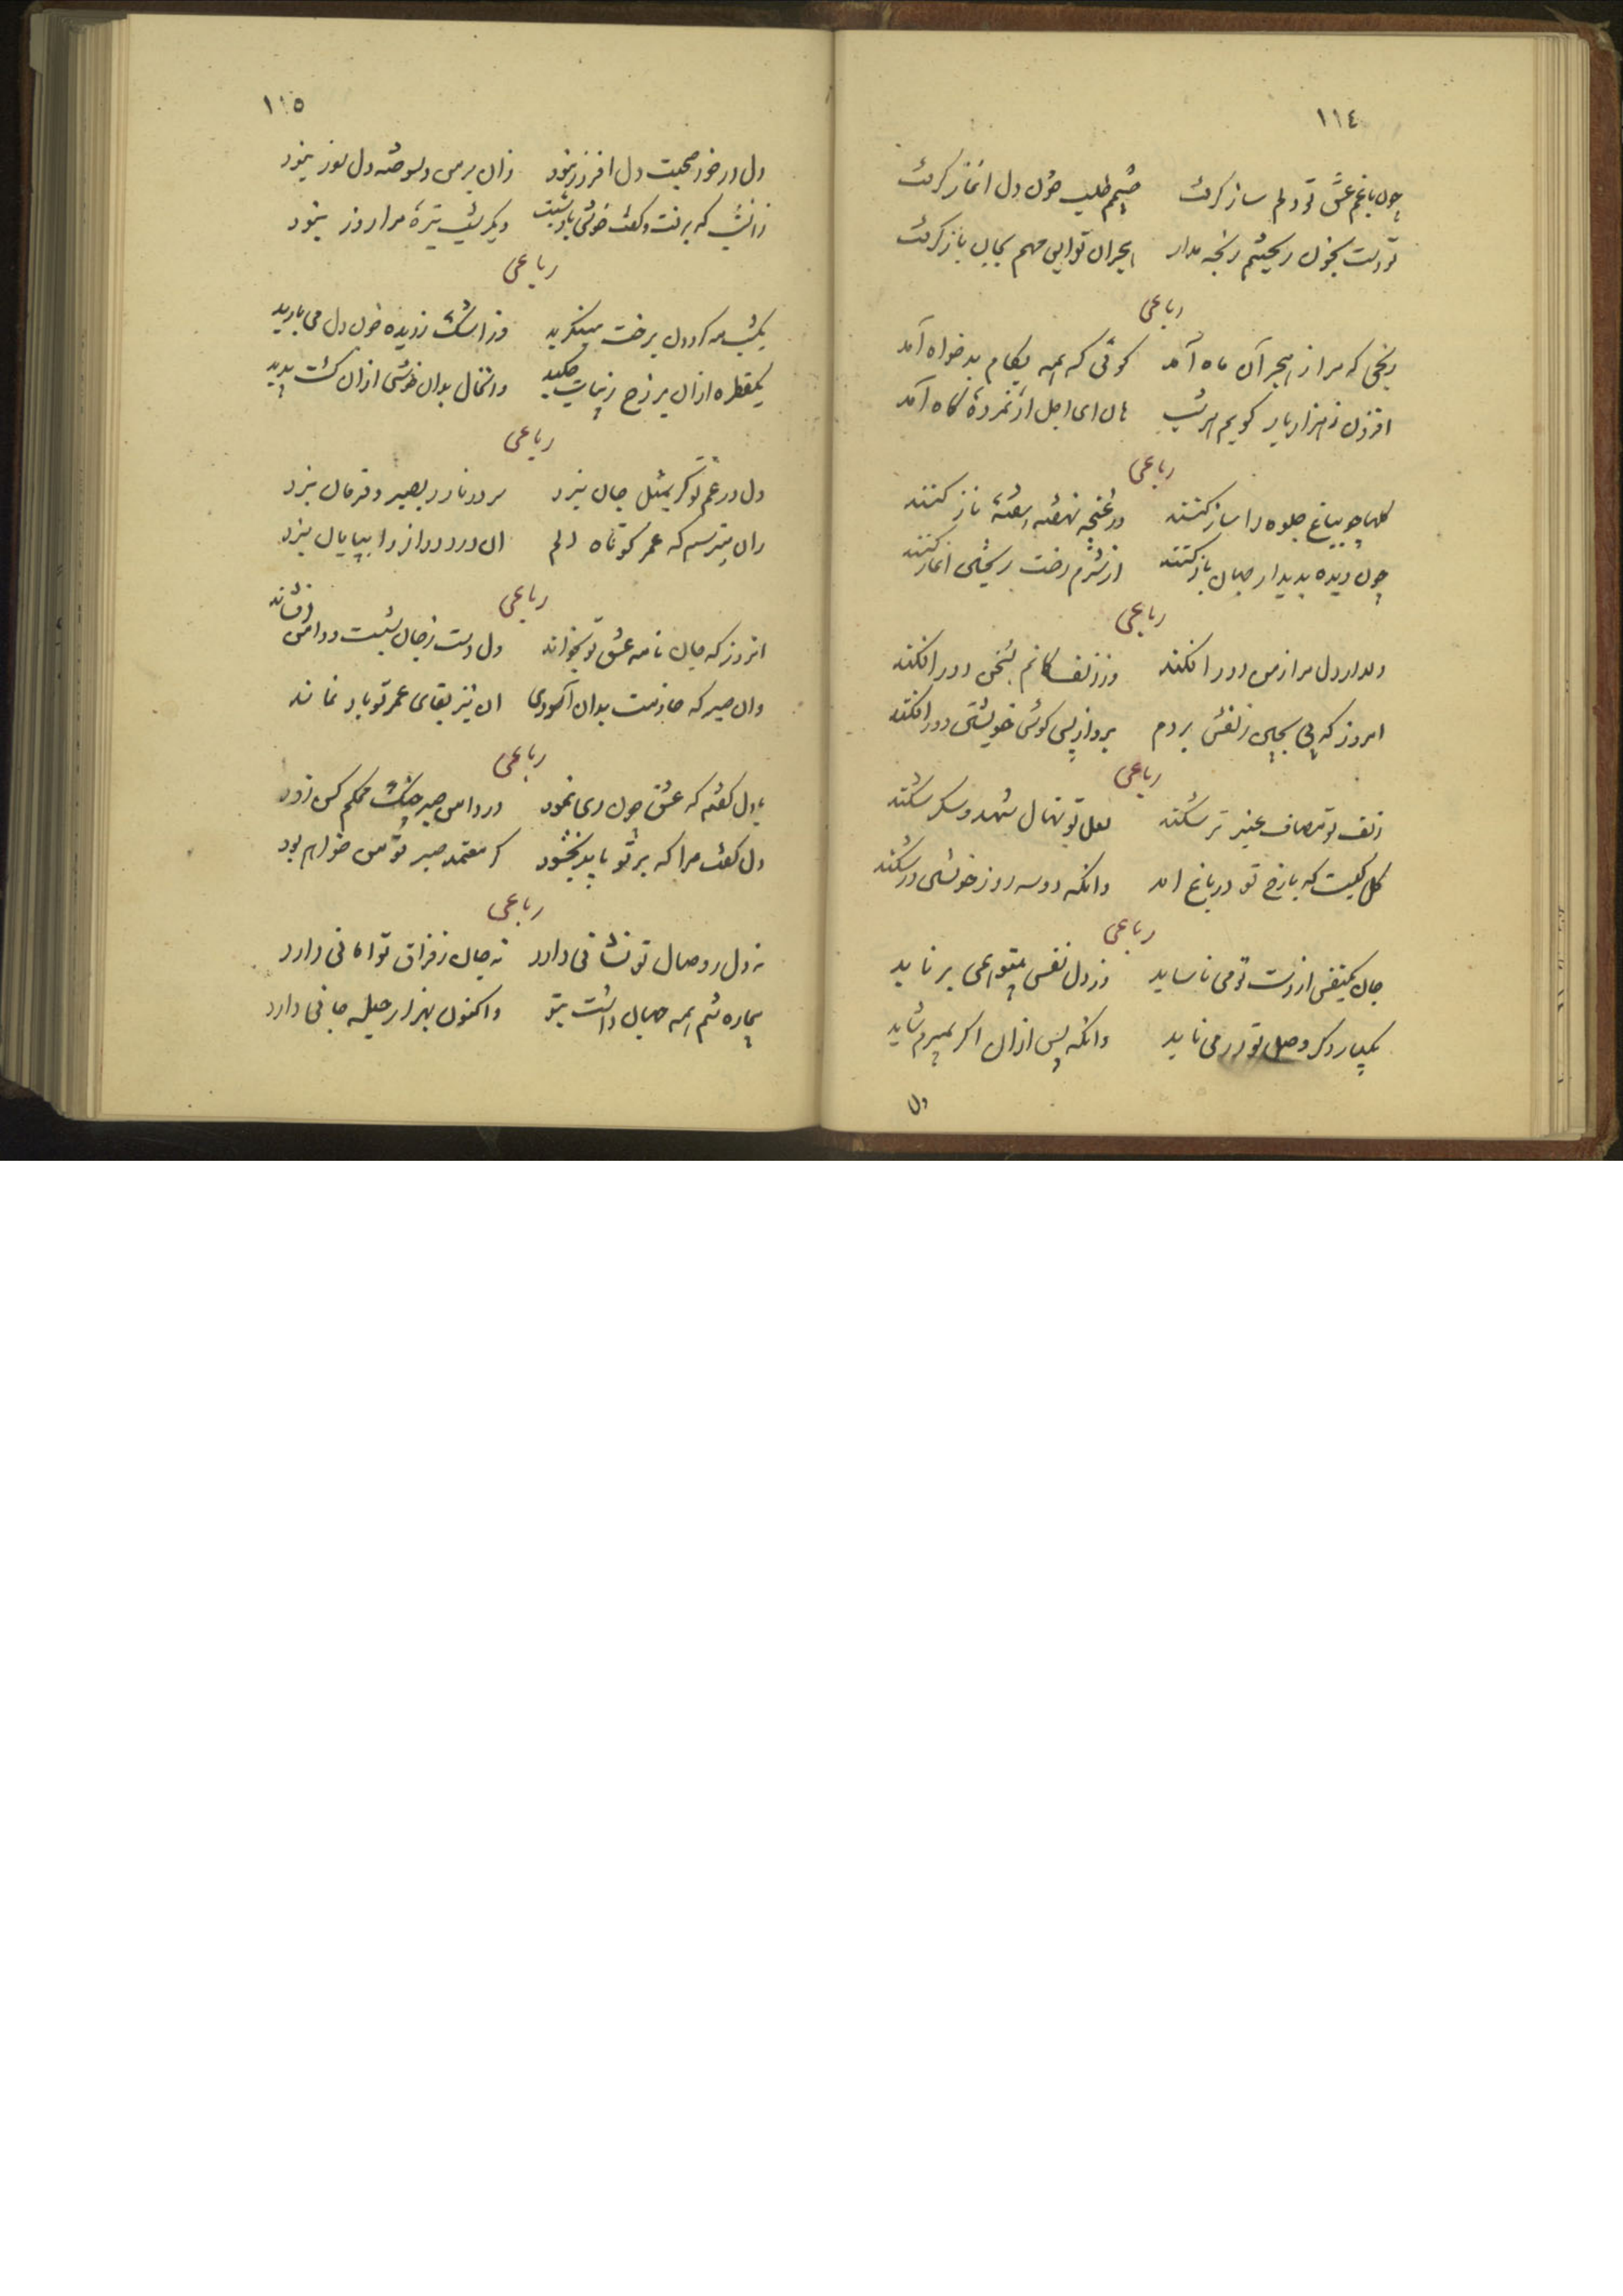 ١١٤
چون باغم عشق تو دلم ساز گرفت چشمم طلب خون دل آغاز گرفت
تو دست بخون ریختنم رنجه مدار هجران تو این مهم بجان باز گرفت
رباعی
رنجی که مرا ز هجر آن ماه آمد گوئی که همه بکام بدخواه آمد
افزون ز هزار بار گویم هر شب هان ای اجل ار نمرده گاه آمد
رباعی
گلها چو بباغ جلوه را ساز کنند در غنچه نهفته هفتهٔ ناز کنند
چون دیده بدیدار جهان باز کنند از شرم رخت ریختن آغاز کنند
رباعی
دلدار دل مرا ز من دور افکند وز زلف کانم بسخن دور افکند
امروز که پی بچین زلفش بردم برد از پس گوش خویشتن دور افکند
رباعی
زلف تو مصاف عنبر تر شکند لعل تو نهال شهد و شکر شکند
گل کیست که با رخ تو در باغ آمد وانگه دو سه روز خویشتن در شکند
رباعی
جان یکنفس از دست تو می ناساید وز دل نفسی بتو همی برناید
یکبار دگر وصل تو در می ناید وانگه پس از آن اگر بمیرم شاید
دل
١١٥
دل در خور صحبت دل افروز نبود زان بر من دلسوخته دل سوز نبود
زانشب که برفت و گفت خوش باد شبت دیگر شب تیرهٔ مرا روز نبود
رباعی
یکشب مه گردون برخت مینگرید وز اشک ز دیده خون دل می بارید
یکقطره از آن بر رخ زیبات چکید وانخال بدان خوشی از آن گشت پدید
رباعی
دل در غم تو گر بمثل جان نبرد سر در نارد بصبر و فرمان نبرد
زان میترسم که عمر کوتاه دلم آن درد دراز را بپایان نبرد
رباعی
آنروز که جان نامه عشق تو بخواند دل دست ز جان بشست و دامن افشاند
وان صبر که خادمت بدان آسودی آن نیز بقای عمر تو باد نماند
رباعی
با دل گفتم که عشق چون روی نمود در دامن صبر چنگ محکم کن زود
دل گفت مرا که بر تو باید بخشود گر معتمد صبر تو من خواهم بود
رباعی
نه دل ز وصال تو نشانی دارد نه جان ز فراق تو امانی دارد
بیچاره تنم همه جهان داشت بتو و اکنون بهزار حیله جانی دارد